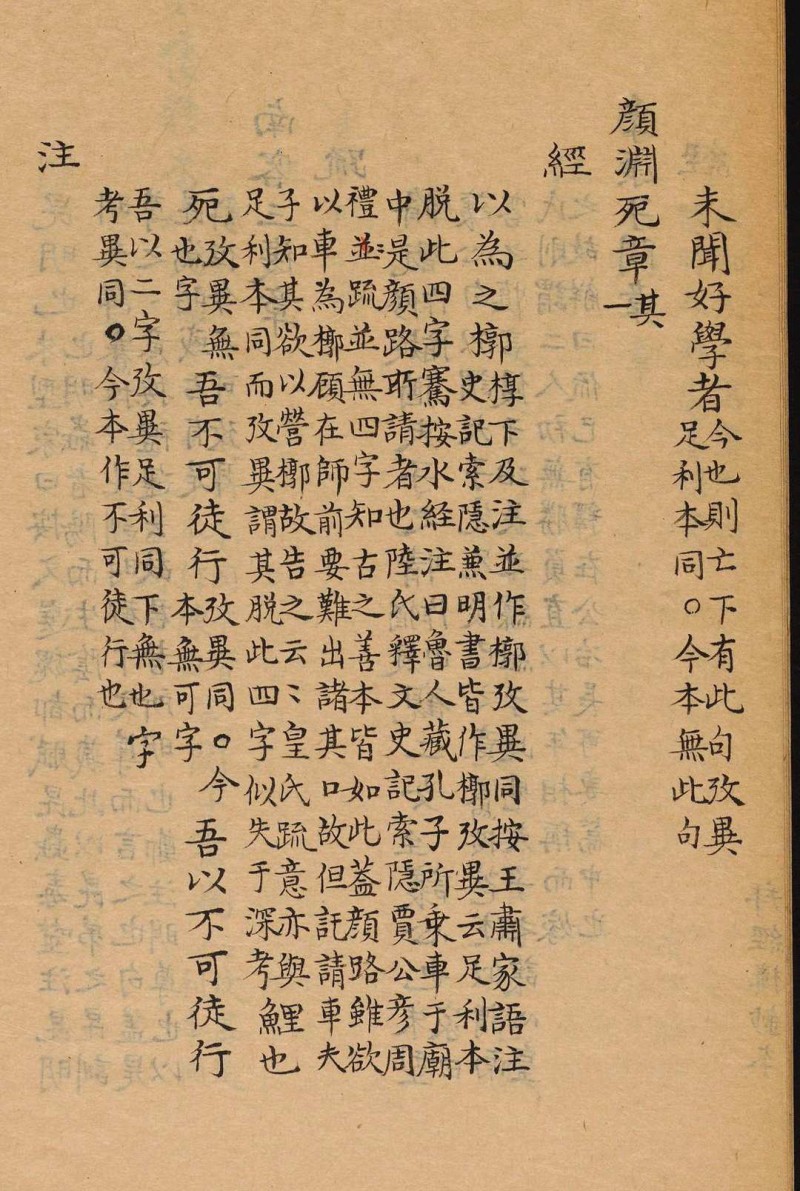 未聞好學者
今也則亡下有此句攷異
足利本同○今本無此句
顏淵死章
其
一
經
以為之槨
椁下及注並作槨攷異同按王肅家語注
史記索隱兼明書皆作槨攷異云足利本
脫此四字騫按水經注曰魯人藏孔子所乘車于廟
中是顏路所請者也陸氏釋文史記索隱賈公彥周
禮並疏並無四字知古之善本皆如此蓋顏路雖欲
以車為槨顧在師前要難出諸其口故但託請車夫
子知其欲以營槨故告之云〻皇氏疏意亦與
足利本同而攷異謂其脫此四字似失于深考
鯉也
死
攷異無
也字
吾不可徒行
攷異同○今
本無可字
吾以不可徒行
吾以二字攷異足利同下無也字
考異同○今本作不可徒行也
注